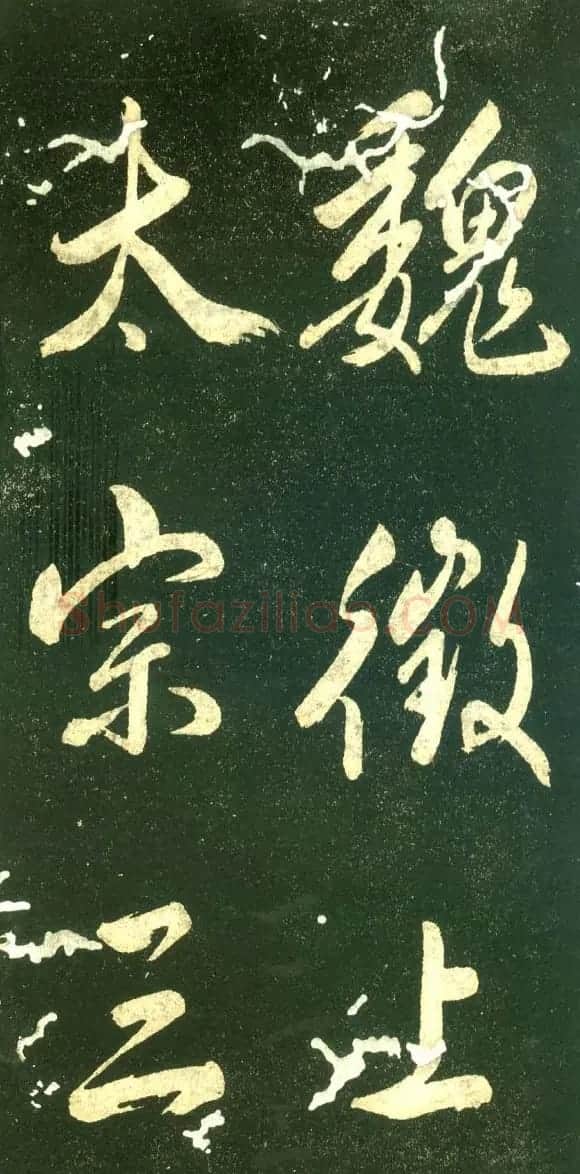 魏徵上
太宗三
Shufaziliao.COM